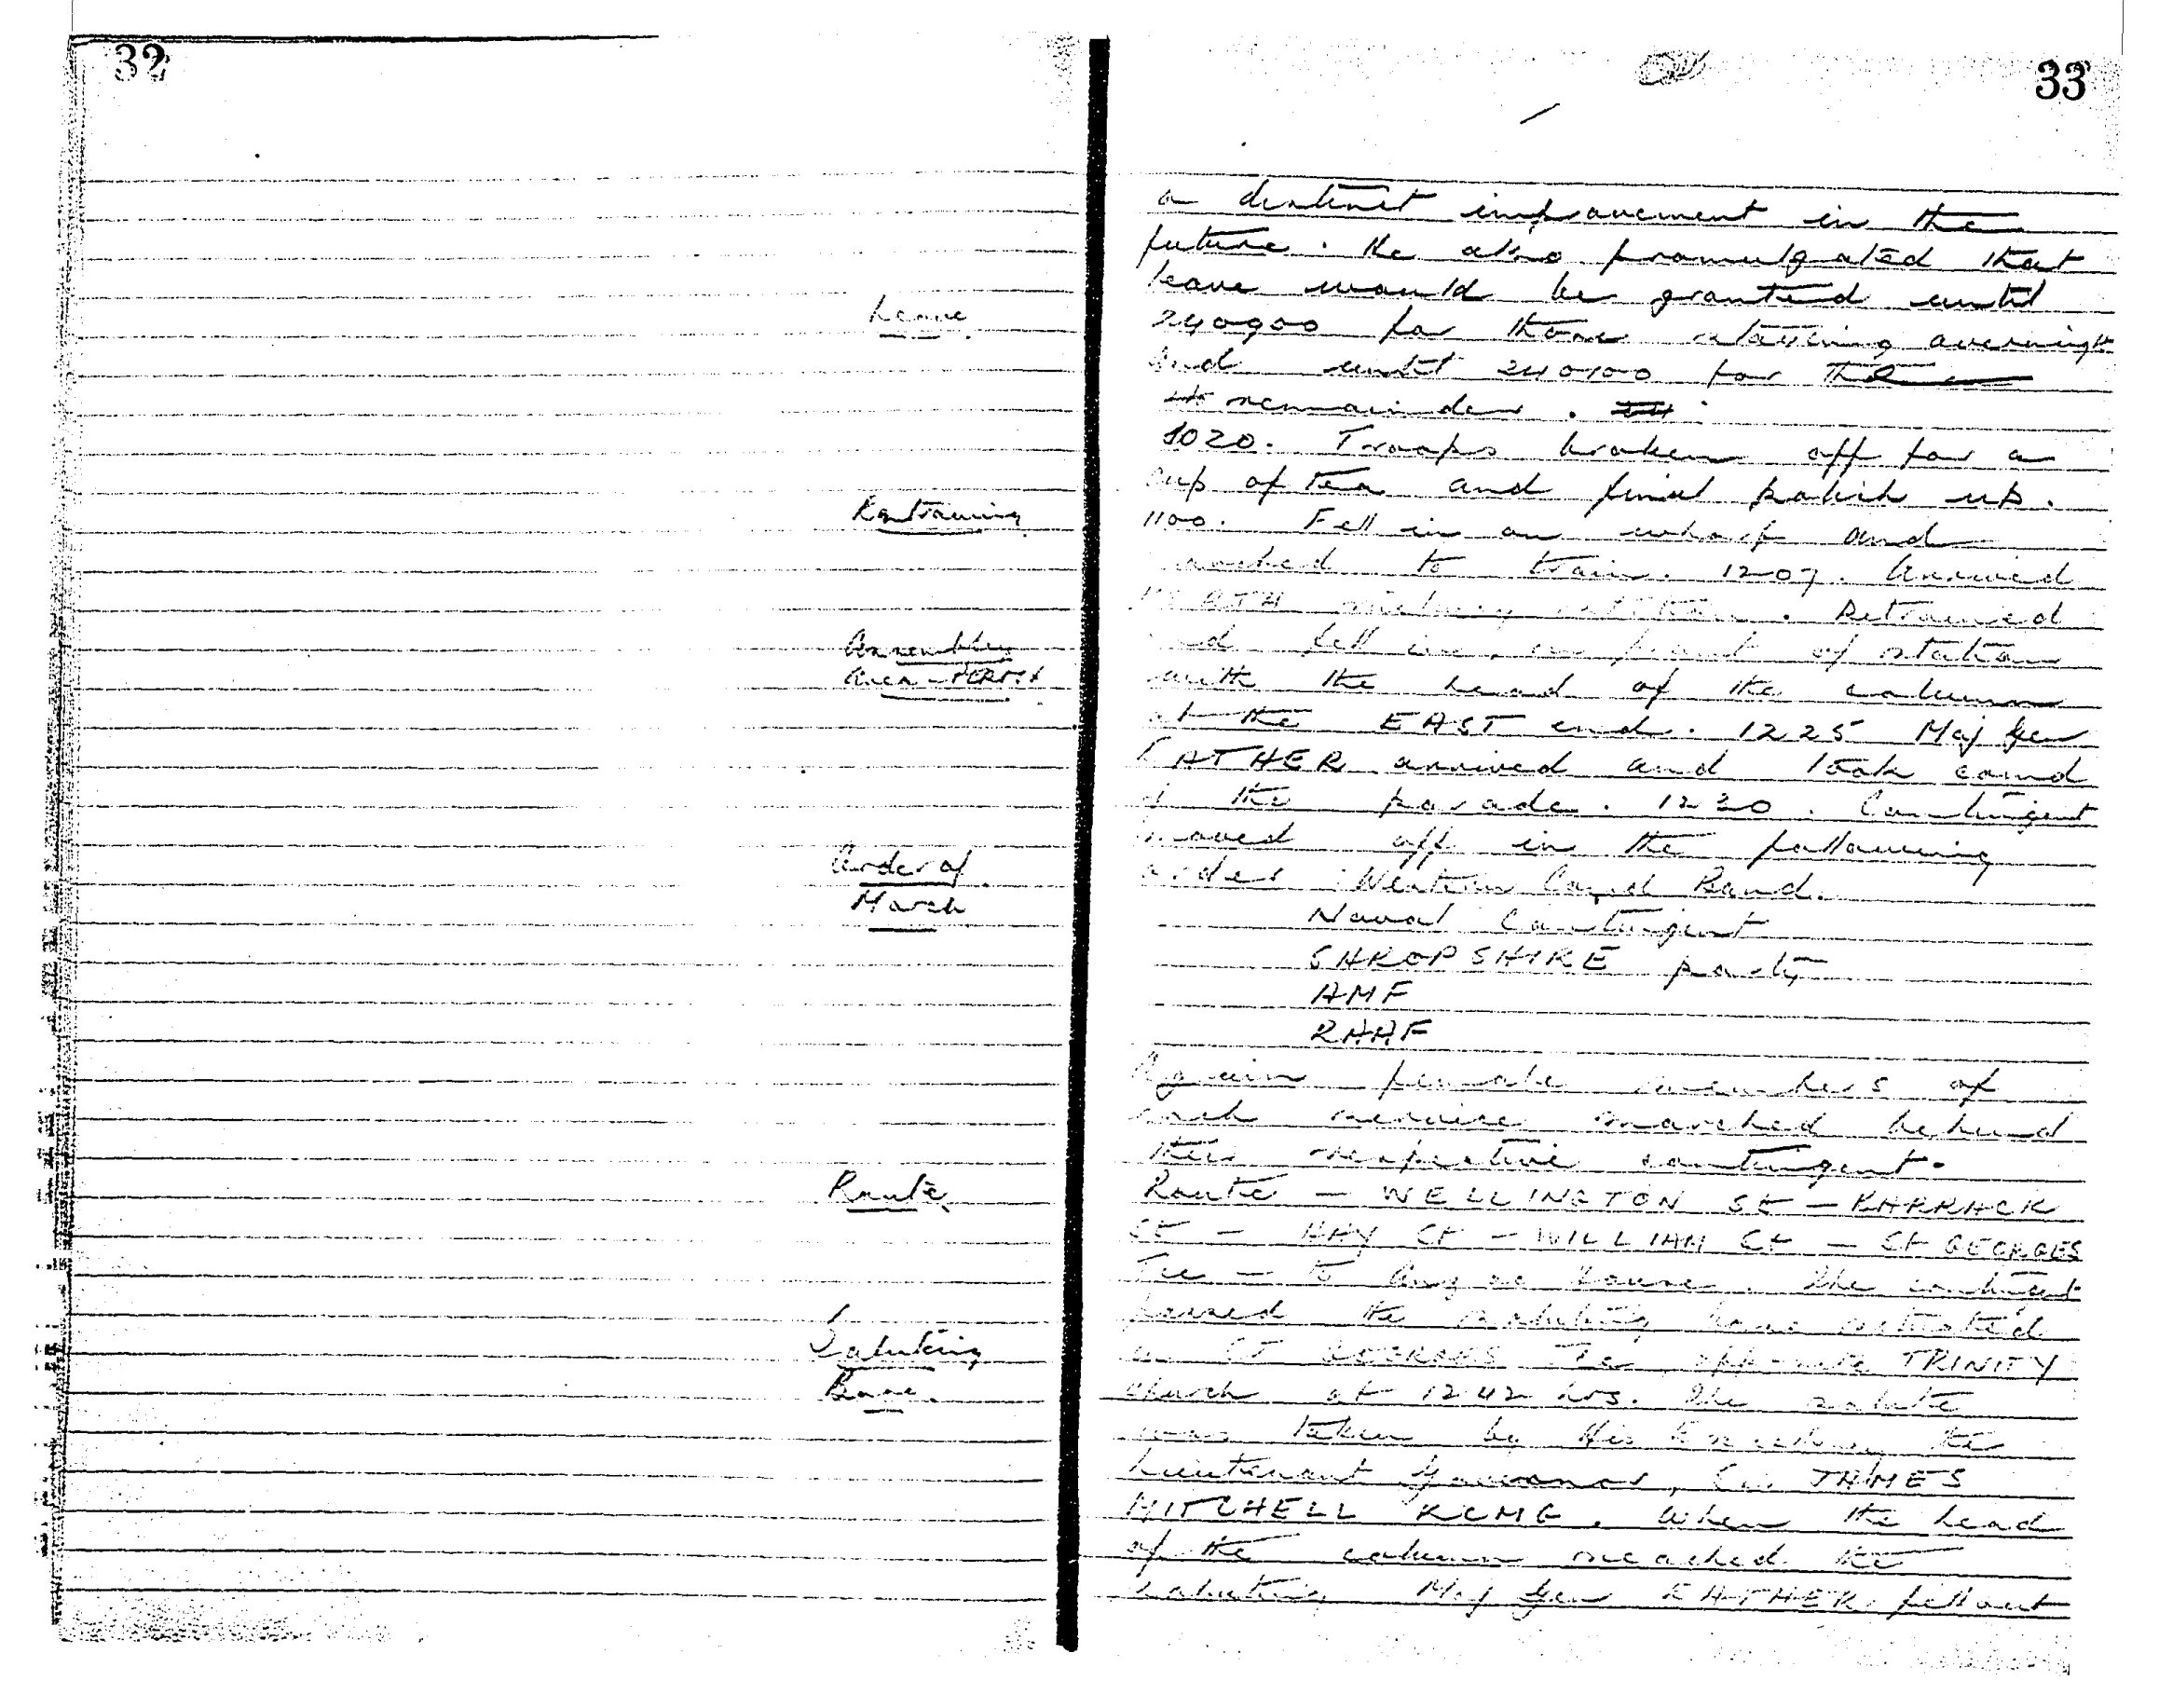 32
Leave
Entraining
Assembly
Area - PERTH
Order of
March
Route
Saluting
Base.
33
a distinct improvement in the
future. He also promulgated that
leave would be granted until
240900 for those staying overnight
and until 240100 for the
remainder.
1020. Troops broken off for a
cup of tea and final polish up.
1100. Fell in on wharf and
marched to train. 1207. Arrived
PERTH railway station. Detrained
and fell in, in front of station
with the head of the column
at the EAST end. 1225 Maj Gen
EATHER arrived and took comd
of the parade. 1230. Contingent
moved off in the following
order Western Comd Band.
Naval Contingent
SHROPSHIRE party
AMF
RAAF
Again female members of
each service marched behind
their respective contingent.
Route - WELLINGTON St - BARRACK
St - HAY St - WILLIAM St - St GEORGES
Tce - to House. The contingent
passed the saluting base situated
in ST GEORGES Tce, opposite TRINITY
church at 1242 hrs. The salute
was taken by His Excellency the
Lieutenant Governor, Sir JAMES
MITCHELL KCMG. When the head
of the column reached the
saluting Maj Gen EATHER fell out